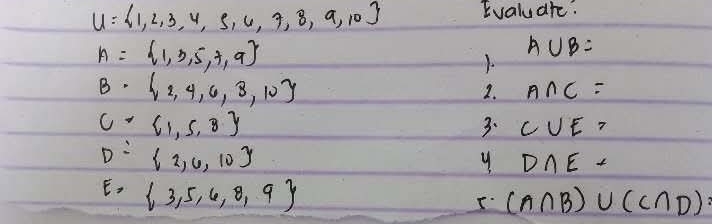 U = {1,2,3,4, 5, 6, 7, 8, 9, 10}
A = {1,3,5,7,9}
B = {2,4,6,8,10}
C = {1,5,8}
D = {2,6,10}
E = {3,5,6,8,9}
Evaluate:
1. A∪B=
2. A∩C =
3. C∪E =
4 D∩E =
5. (A∩B) ∪ (C∩D)=